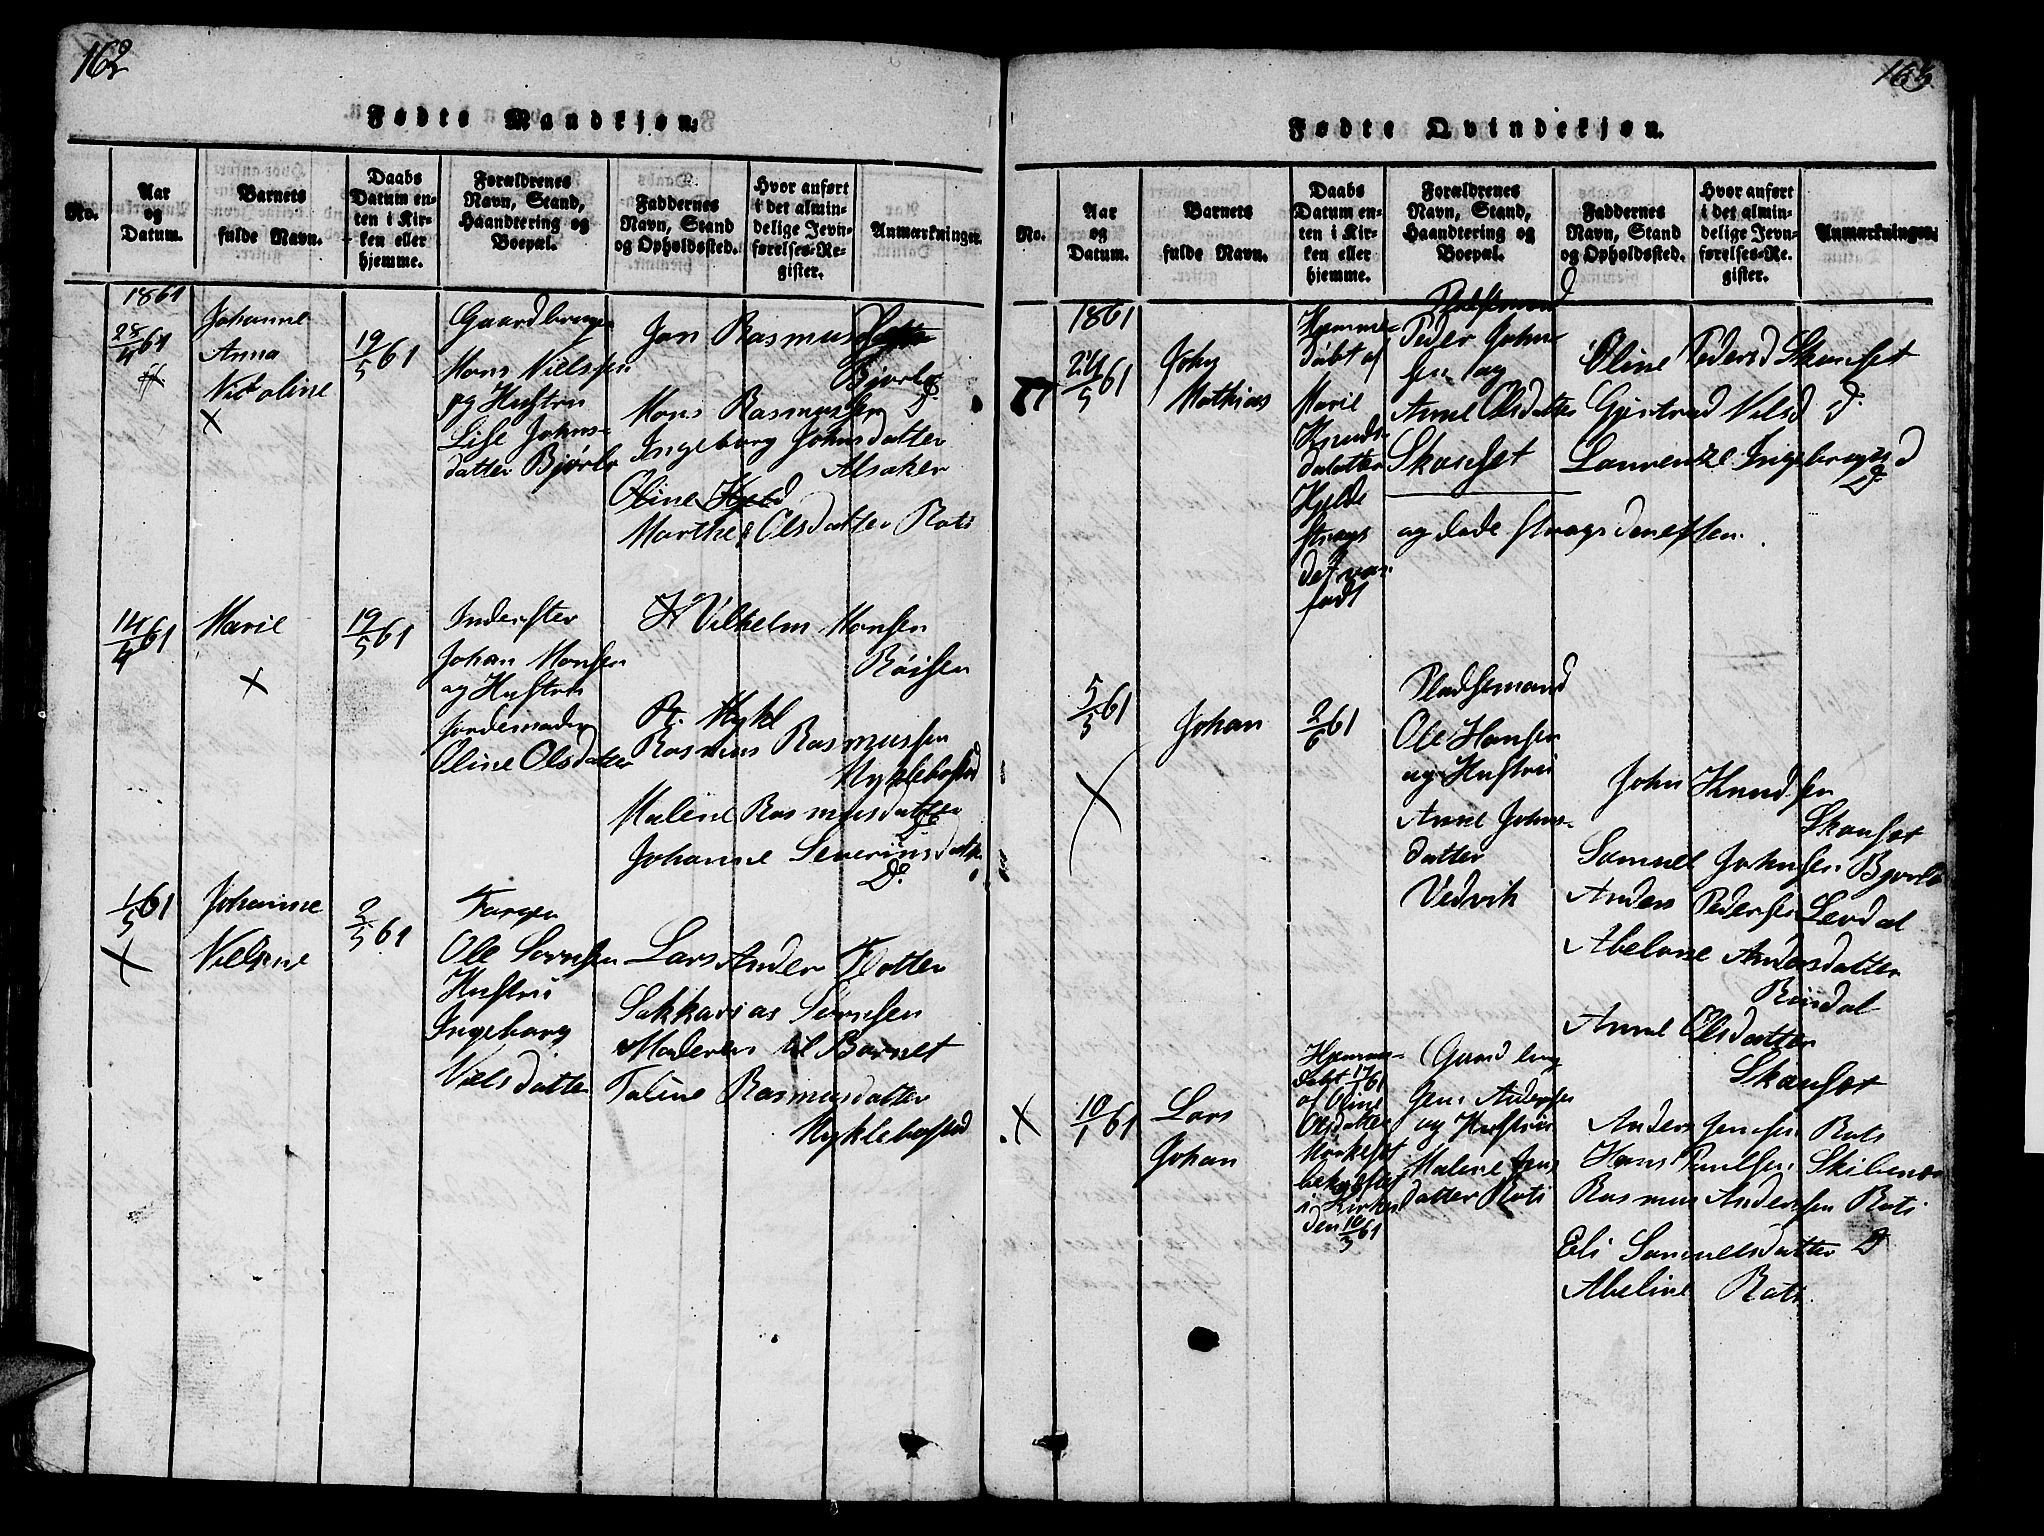 162
Fødte Mandkjøn.
No.
Aar
og
Datum.
Barnets
fulde Navn.
Daabs
Datum en-
ten i Kir-
ken eller
hjemme.
Forældrenes
Navn, Stand,
Haandtering og
Boepæl.
Faddernes
Navn, Stand
og Opholdssted.
Hvor anført
i det almin-
delige Jevn-
førelses-Re-
gister.
Anmærkninger.
1861
28/4 61
Johanne
Anna
Nicoline
19/5 61
Gaardbruger
Mons Nielssen
og Hustru
Lise Johns-
datter Bjørlo
Jon Rasmussen
Bjørlo
Mons Rasmussen D
Ingeborg Johnsdatter
Alsaker
Oline
Marthe Olsdatter Roti
14/4 61
Marie
19/5 61
Inderster
Johan Monsen
og Hustru
Jordemoder
Oline Olsdatter
Vilhelm Monsen
Röisen
Rasmus Rasmussen
Myklebostad
Malene Rasmusdatter
Do
Johanne Severinsdatter
Do
1/5 61
Johanne
Nielsine
2/5 61
Farger
Ole Sørnsen
Hustru
Ingeborg
Nielsdatter
Lars Ander Flotten
Sakkarias Sørnsen
Moderen til Barnet
Taline Rasmusdatter
Myklebostad
163
Fødte Qvindekjøn.
No.
Aar
og
Datum.
Barnets
fulde Navn.
Daabs
Datum en-
ten i Kir-
ken eller
hjemme.
Forældrenes
Navn, Stand,
Haandtering og
Boepæl.
Faddernes
Navn, Stand
og Opholdssted.
Hvor anført
i det almin-
delige Jevn-
førelses-Re-
gister.
Anmærkninger.
1861
24/5 61
John
Mathias
Hjemme-
døbt af
Marie
Knuds-
datter
Hjelde
strags
det var
født
Pladsemand
Peder John-
sen og
Anne Olsdatter
Skanset
og døde strags derefter.
Oline Pedersd Skanset
Gjertrud Nilsd D
Laurenze Ingebrigtsd
D
5/5 61
Johan
2/6 61
Pladsemand
Ole Hansen
og Hustru
Anne Johns-
datter
Vedvik
John Knudsen
Skanset
Samuel Johnsen Bjørlo
Anders Pedersen Levdal
Abelone Andersdatter
Röisdal
Anne Olsdatter
Skanset
10/1 61
Lars
Johan
Hjemme-
døbt 17/1 61
af Oline
Olsdatter
Mörkeset
bekræftet
i Kirken
den 10/3 61
Gaardbrug
Jens Andersen
og Hustru
Malene Jens
datter Roti
Anders Jensen Roti
Hans Paulsen Skibenes
Rasmus Andersen Roti
Eli Samuelsdatter D
Abeline Roti